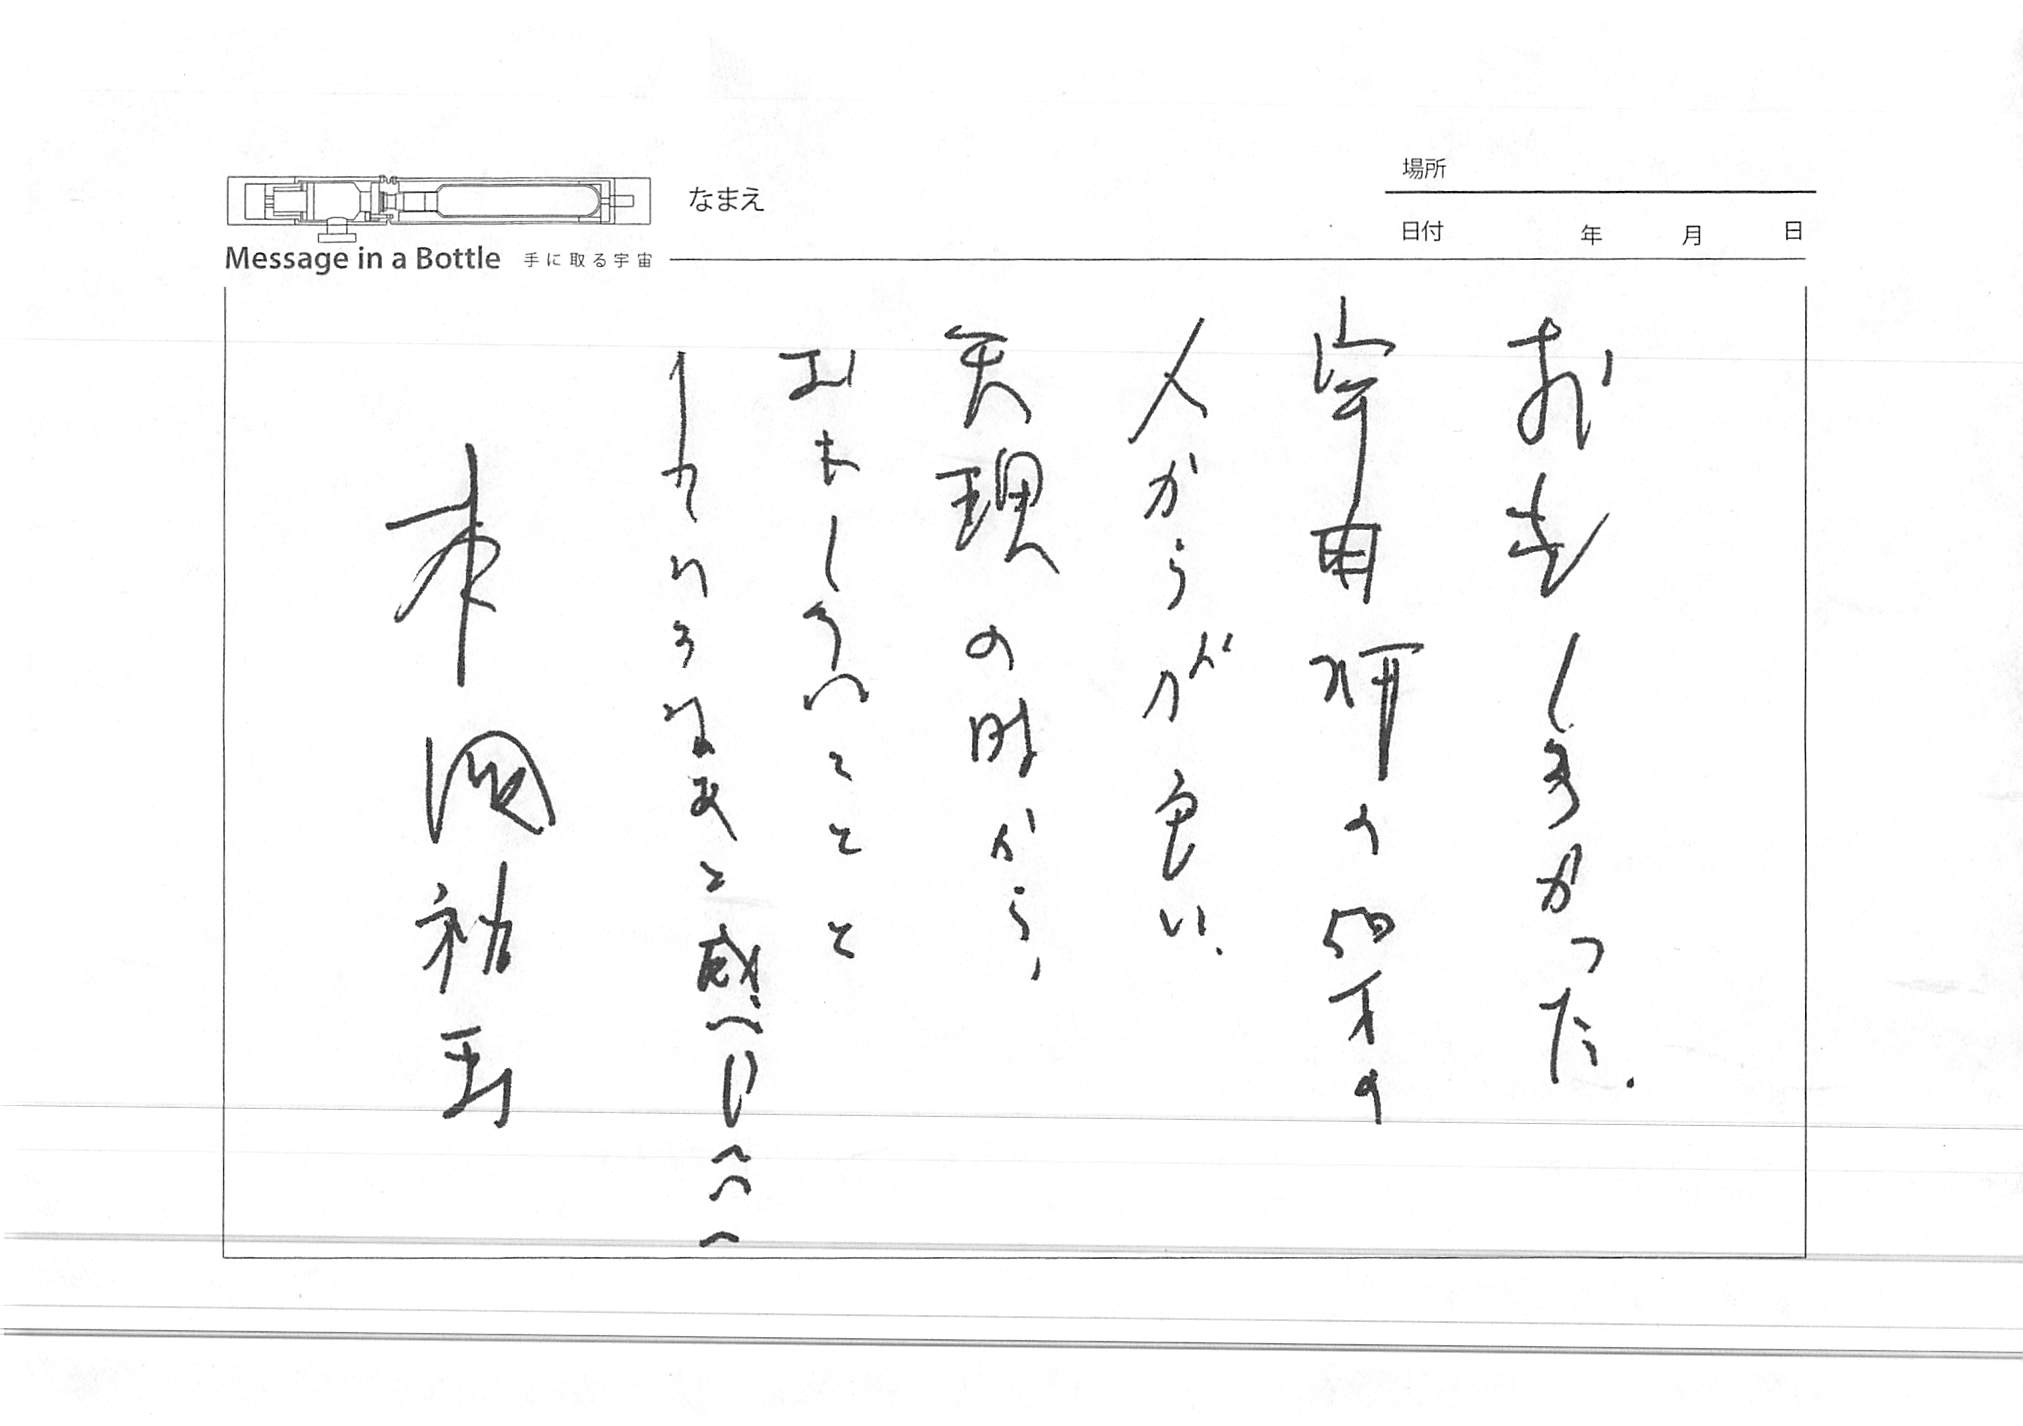 なまえ
場所
日付 年 月 日
Message in a Bottle 手に取る宇宙
おもしろかった.
宇宙研の50才の
人からが良い.
天理の時から,
おもしろいことと
なあと感じ
本 祐